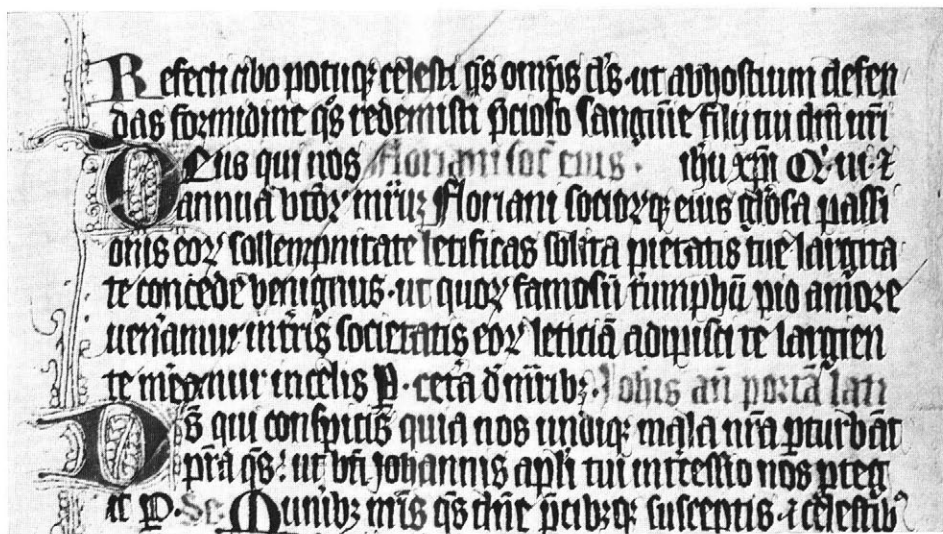 Refecti cibo potuqꝫ celesti q̄s om̄ps ds̄ · ut ab hostium defen
das formidine q̄s redemisti p̄cioso sanguīe filij tui dn̄i nr̄i
Deus qui nos Floriani soc̄ eius · ihū xp̄i Qꝛ · ⁊
annua btōꝝ mr̄uꝫ Floriani socioꝝqꝫ eius gl̄osa passi
onis eoꝝ sollempnitate letificas solita pietatis tue largita
te concede benignus · ut quoꝝ famosū triūmphū pio amore
uen̄amur int̄ris societatis eoꝝ leticiā adipisci te largien
te m̄eamur in celis P · cet̄a d̄ mr̄ibꝫ · Johis an̄ portā lati
Ds̄ qui conspicis quia nos undiqꝫ mala nr̄a ꝑturbāt
pr̄a q̄s · ut bt̄i Johannis apl̄i tui int̄cessio nos ꝓteg
at P · Se · Munibꝫ nr̄is q̄s dn̄e p̄cibꝫqꝫ susceptis · ⁊ celestibꝰ